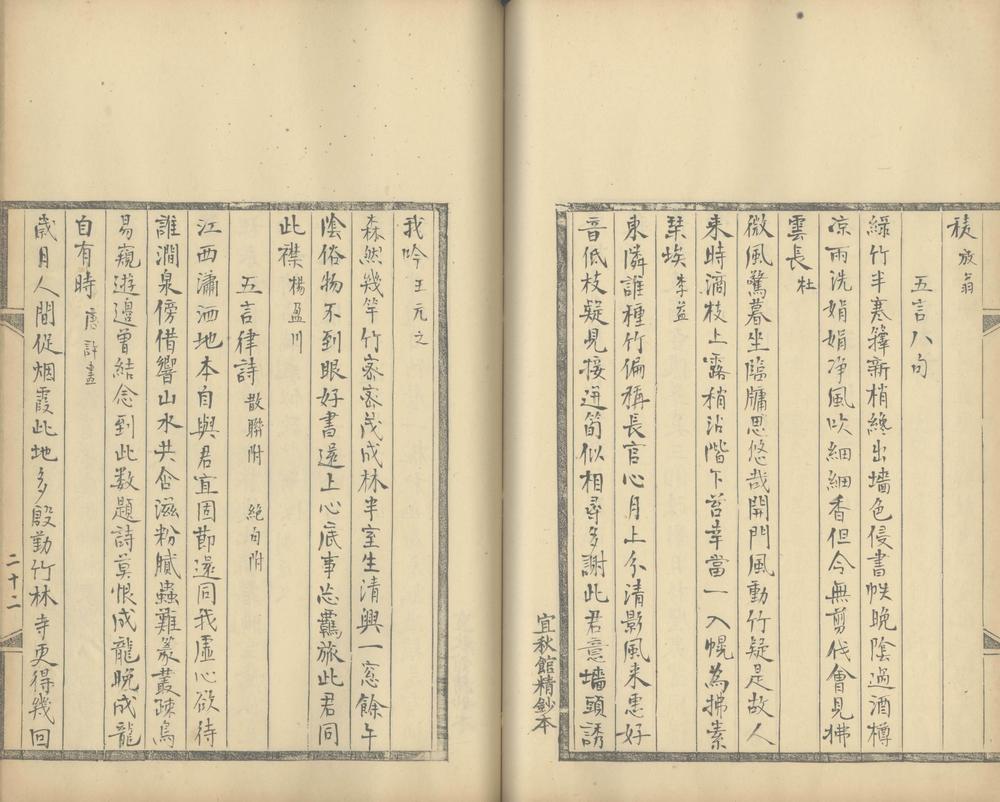 稜 放翁
五言八句
綠竹半寒籜新梢纔出墻色侵書帙晚陰過酒樽
凉雨洗娟娟净風吹細細香但令無剪伐會見拂
雲長 杜
微風驚暮坐臨牖思悠哉開門風動竹疑是故人
来時滴枝上露稍沾階下苔幸當一入幌為拂素
琹埃 李益
東隣誰種竹偏稱長官心月上分清影風来惠好
音低枝疑見接迸筍似相尋多謝此君意墻頭誘
宜秋館精鈔本
我吟 王元之
森然幾竿竹密密茂成林半室生清興一窓餘午
陰俗物不到眼好書還上心底事忘羈旅此君同
此襟 楊盈川
五言律詩 散聯附 絶句附
江西瀟洒地本自與君宜固節還同我虛心欲待
誰澗泉傍借響山水共含滋粉膩蟲難篆叢疎鳥
易窺遊邊曾結念到此数題詩莫恨成龍晚成龍
自有時 唐許晝
歲月人間促烟霞此地多殷勤竹林寺更得幾回
二十二